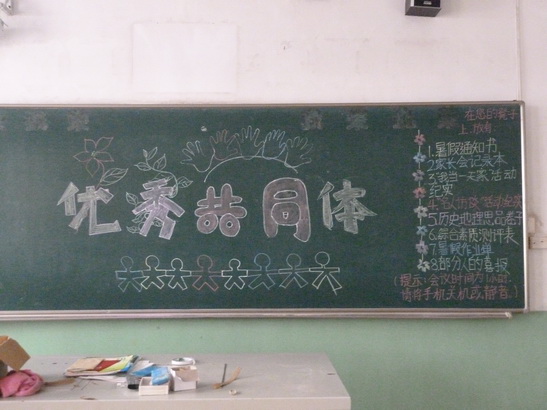 优秀共同体
在您的桌子
上,放有
1.暑假通知书
2.家长会记录本
3.我当一天家 活动
5.历史地理思品卷子
6.综合素质测评表
7.暑假作业单
8.部分人的喜报
(提示:会议时间 小时
请将手机关机或静音。)